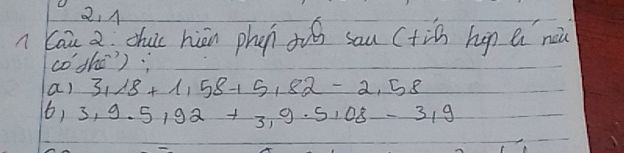 2,1
1 Câu 2: thực hiện phép tính sau (tính hợp lí nếu
có thể):
a) 3,18 + 1,58 + 5,82 - 2,58
b) 3,9 . 5,92 + 3,9 . 5,08 - 3,9